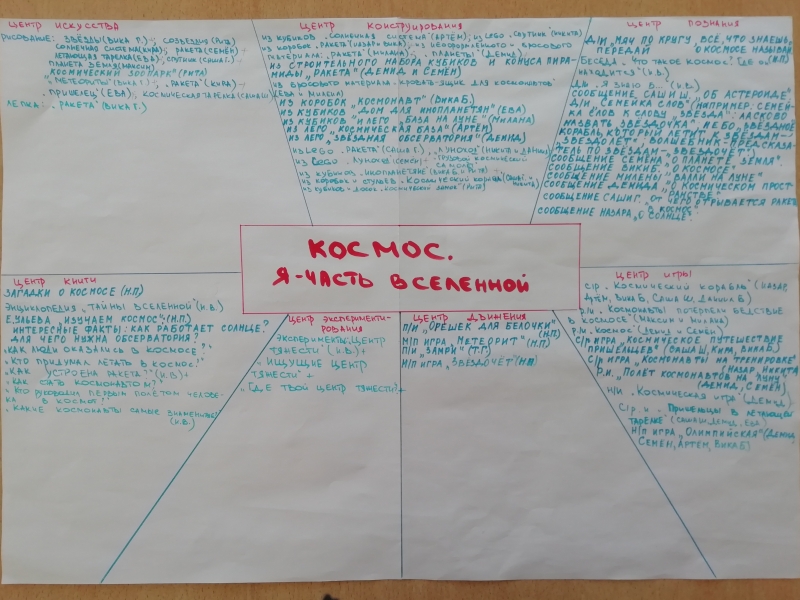 ЦЕНТР ИСКУССТВА
РИСОВАНИЕ: ЗВЁЗДЫ (ВИКА Г.); СОЗВЕЗДИЯ (РИТА)
СОЛНЕЧНАЯ СИСТЕМА (КИРА); РАКЕТА (СЕМЁН)
ЛЕТАЮЩАЯ ТАРЕЛКА (ЕВА); СПУТНИК (САША Г.)
ПЛАНЕТА ЗЕМЛЯ (МАКСИМ)
„КОСМИЧЕСКИЙ ЗООПАРК" (РИТА)
„МЕТЕОРИТЫ" (ВИКА Г.), „РАКЕТА" (КИРА)
„ПРИШЕЛЕЦ" (ЕВА), КОСМИЧЕСКАЯ ТАРЕЛКА
ЛЕПКА: „РАКЕТА" (ВИКА Г.)
ЦЕНТР КОНСТРУИРОВАНИЯ
ИЗ КУБИКОВ „СОЛНЕЧНАЯ СИСТЕМА" (АРТЁМ); ИЗ LEGO „СПУТНИК" (НИКИТА)
ИЗ КОРОБОК „РАКЕТА" (НАЗАР, ВИКА); ИЗ НЕОФОРМЛЕННОГО И БРОСОВОГО
МАТЕРИАЛА: РАКЕТА" (МИЛАНА), „ПЛАНЕТЫ" (ДЕМИД)
ИЗ СТРОИТЕЛЬНОГО НАБОРА КУБИКОВ И КОНУСА ПИРА-
МИДЫ „РАКЕТА" (ДЕМИД И СЕМЁН)
ИЗ БРОСОВОГО МАТЕРИАЛА „КРОВАТЬ-ЯЩИК ДЛЯ КОСМОНАВТОВ"
(ЕВА И МИЛЕНА)
ИЗ КОРОБОК „КОСМОНАВТ" (ВИКА Б.)
ИЗ КУБИКОВ „ДОМ ДЛЯ ИНОПЛАНЕТЯН" (ЕВА)
ИЗ КУБИКОВ И ЛЕГО „БАЗА НА ЛУНЕ" (МИЛАНА)
ИЗ ЛЕГО „КОСМИЧЕСКАЯ БАЗА" (АРТЁМ)
ИЗ ЛЕГО „ЗВЁЗДНАЯ ОБСЕРВАТОРИЯ" (ДЕМИД)
ИЗ LEGO „РАКЕТА" (САША Г.), „ЛУНОХОД" (НИКИТА И
ИЗ LEGO „ЛУНОХОД" (СЕМЁН) „ГРУЗОВОЙ КОСМИЧЕСКИЙ
ИЗ КУБИКОВ „ИНОПЛАНЕТЯНЕ" (ВИКА Б. И РИТА)
ИЗ КОРОБОК И СТУЛЬЕВ „КОСМИЧЕСКИЙ КОРАБЛЬ"
НИКИТА)
ИЗ КУБИКОВ И ДОСОК „КОСМИЧЕСКИЙ ЗАМОК" (РИТА)
ЦЕНТР ПОЗНАНИЯ
Д/И „МЯЧ ПО КРУГУ, ВСЁ, ЧТО ЗНАЕШЬ,
ПЕРЕДАЙ О КОСМОСЕ НАЗЫВАЙ"
(Н.П)
БЕСЕДА „ЧТО ТАКОЕ КОСМОС? ГДЕ ОН
НАХОДИТСЯ" (И.В.)
Д/И „Я ЗНАЮ 5..." (И.В.)
СООБЩЕНИЕ САШИ Ш. „ОБ АСТЕРОИДЕ"
Д/И „СЕМЕЙКА СЛОВ" (НАПРИМЕР: СЕМЕЙ-
КА СЛОВ К СЛОВУ „ЗВЕЗДА": ЛАСКОВО
НАЗВАТЬ „ЗВЁЗДОЧКА", НЕБО „ЗВЁЗДНОЕ"
КОРАБЛЬ, КОТОРЫЙ ЛЕТИТ К ЗВЁЗДАМ
„ЗВЕЗДОЛЁТ", ВОЛШЕБНИК-ПРЕДСКАЗА-
ТЕЛЬ ПО ЗВЁЗДАМ „ЗВЕЗДОЧЁТ")
СООБЩЕНИЕ СЕМЁНА „О ПЛАНЕТЕ ЗЕМЛЯ"
СООБЩЕНИЕ ВИКИ Б. „О КОСМОСЕ"
СООБЩЕНИЕ МИЛЕНЫ „ВАЛЛИ НА ЛУНЕ"
СООБЩЕНИЕ ДЕМИДА „О КОСМИЧЕСКОМ ПРОСТ-
РАНСТВЕ"
СООБЩЕНИЕ САШИ Г. „ОТ ЧЕГО ОТРЫВАЕТСЯ РАКЕТА
В КОСМОС"
СООБЩЕНИЕ НАЗАРА „О СОЛНЦЕ"
КОСМОС.
Я-ЧАСТЬ ВСЕЛЕННОЙ
ЦЕНТР КНИГИ
ЗАГАДКИ О КОСМОСЕ (Н.П)
ЭНЦИКЛОПЕДИЯ „ТАЙНЫ ВСЕЛЕННОЙ" (И.В.)
„ИЗУЧАЕМ КОСМОС" (Н.П)
ИНТЕРЕСНЫЕ ФАКТЫ: КАК РАБОТАЕТ СОЛНЦЕ?
ДЛЯ ЧЕГО НУЖНА ОБСЕРВАТОРИЯ?
„КАК ЛЮДИ ОКАЗАЛИСЬ В КОСМОСЕ?"
„КТО ПРИДУМАЛ ЛЕТАТЬ В КОСМОС?"
„КАК УСТРОЕНА РАКЕТА?" (И.В.)
„КАК СТАТЬ КОСМОНАВТОМ?"
„КТО РУКОВОДИЛ ПЕРВЫМ ПОЛЁТОМ ЧЕЛОВЕ-
КА В КОСМОС?"
„КАКИЕ КОСМОНАВТЫ САМЫЕ ЗНАМЕНИТЫЕ?"
(И.В.)
ЦЕНТР ЭКСПЕРИМЕНТИ-
РОВАНИЯ
ЭКСПЕРИМЕНТЫ: „ЦЕНТР
ТЯЖЕСТИ" (И.В.) +
„ИЩУЩИЕ ЦЕНТР
ТЯЖЕСТИ" +
„ГДЕ ТВОЙ ЦЕНТР ТЯЖЕСТИ?" +
ЦЕНТР ДВИЖЕНИЯ
П/И „ОРЕШЕК ДЛЯ БЕЛОЧКИ"
(Н.П)
М/П ИГРА „МЕТЕОРИТ" (Н.П)
П/И „ЗАМРИ" (Т.Г)
М/П ИГРА „ЗВЕЗДОЧЁТ" (Н.П)
ЦЕНТР ИГРЫ
С/Р „КОСМИЧЕСКИЙ КОРАБЛЬ" (НАЗАР,
АРТЁМ, ВИКА Б, САША Ш, ДАНИЛА Б)
Р./И. „КОСМОНАВТЫ ПОТЕРПЕЛИ БЕДСТВИЕ
В КОСМОСЕ" (МАКСИМ И МИЛАНА)
Р./И. „КОСМОС" (ДЕМИД И СЕМЁН)
С/Р ИГРА „КОСМИЧЕСКОЕ ПУТЕШЕСТВИЕ
ПРИШЕЛЬЦЕВ" (САША Ш, КИМ, ВИКА Б)
С/Р ИГРА „КОСМОНАВТЫ НА ТРЕНИРОВКЕ"
(НАЗАР, НИКИТА)
Р.И. „ПОЛЁТ КОСМОНАВТОВ НА ЛУНУ"
(ДЕМИД, СЕМЁН)
Н/И „КОСМИЧЕСКАЯ ИГРА" (ДЕМИД)
С/Р И „ПРИШЕЛЬЦЫ В ЛЕТАЮЩЕЙ
ТАРЕЛКЕ"
Н/П ИГРА „ОЛИМПИЙСКАЯ" (ДЕМИД,
СЕМЁН, АРТЁМ, ВИКА Б)